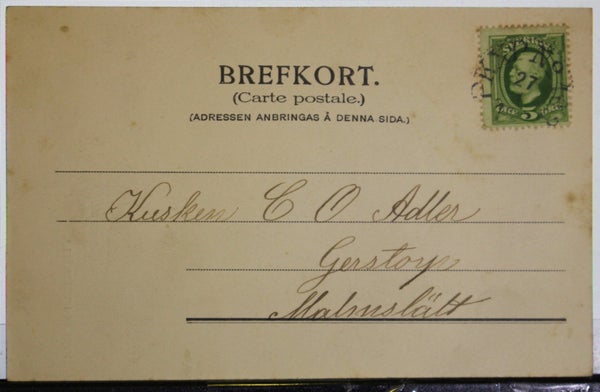 BREFKORT.
(Carte postale.)
(ADRESSEN ANBRINGAS Å DENNA SIDA.)
SVERIGE
27
5
Kusken C O Adler
Gerstorp
Malmslätt